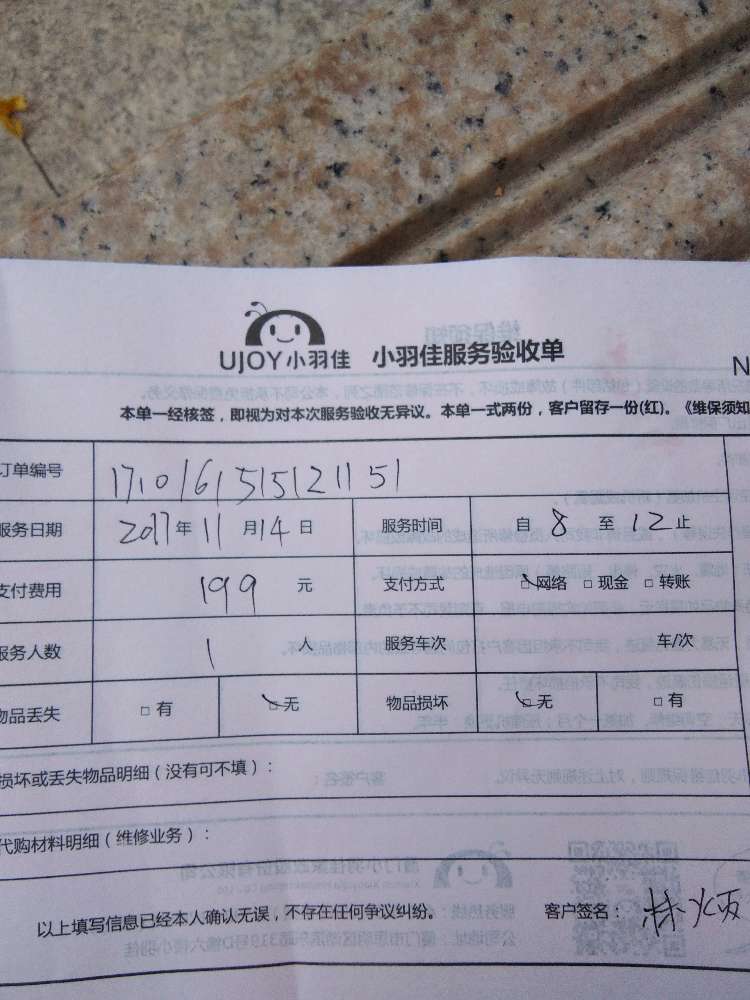 UJOY小羽佳 小羽佳服务验收单
N
本单一经核签，即视为对本次服务验收无异议。本单一式两份，客户留存一份(红)。《维保须知
订单编号 17101615151211 51
服务日期 2017年 11 月 14 日 服务时间 自 8 至 12 止
支付费用 199 元 支付方式 □网络 □现金 □转账
服务人数 1 人 服务车次 车/次
物品丢失 □有 □无 物品损坏 □无 □有
损坏或丢失物品明细（没有可不填）：
代购材料明细（维修业务）：
以上填写信息已经本人确认无误，不存在任何争议纠纷。 客户签名：